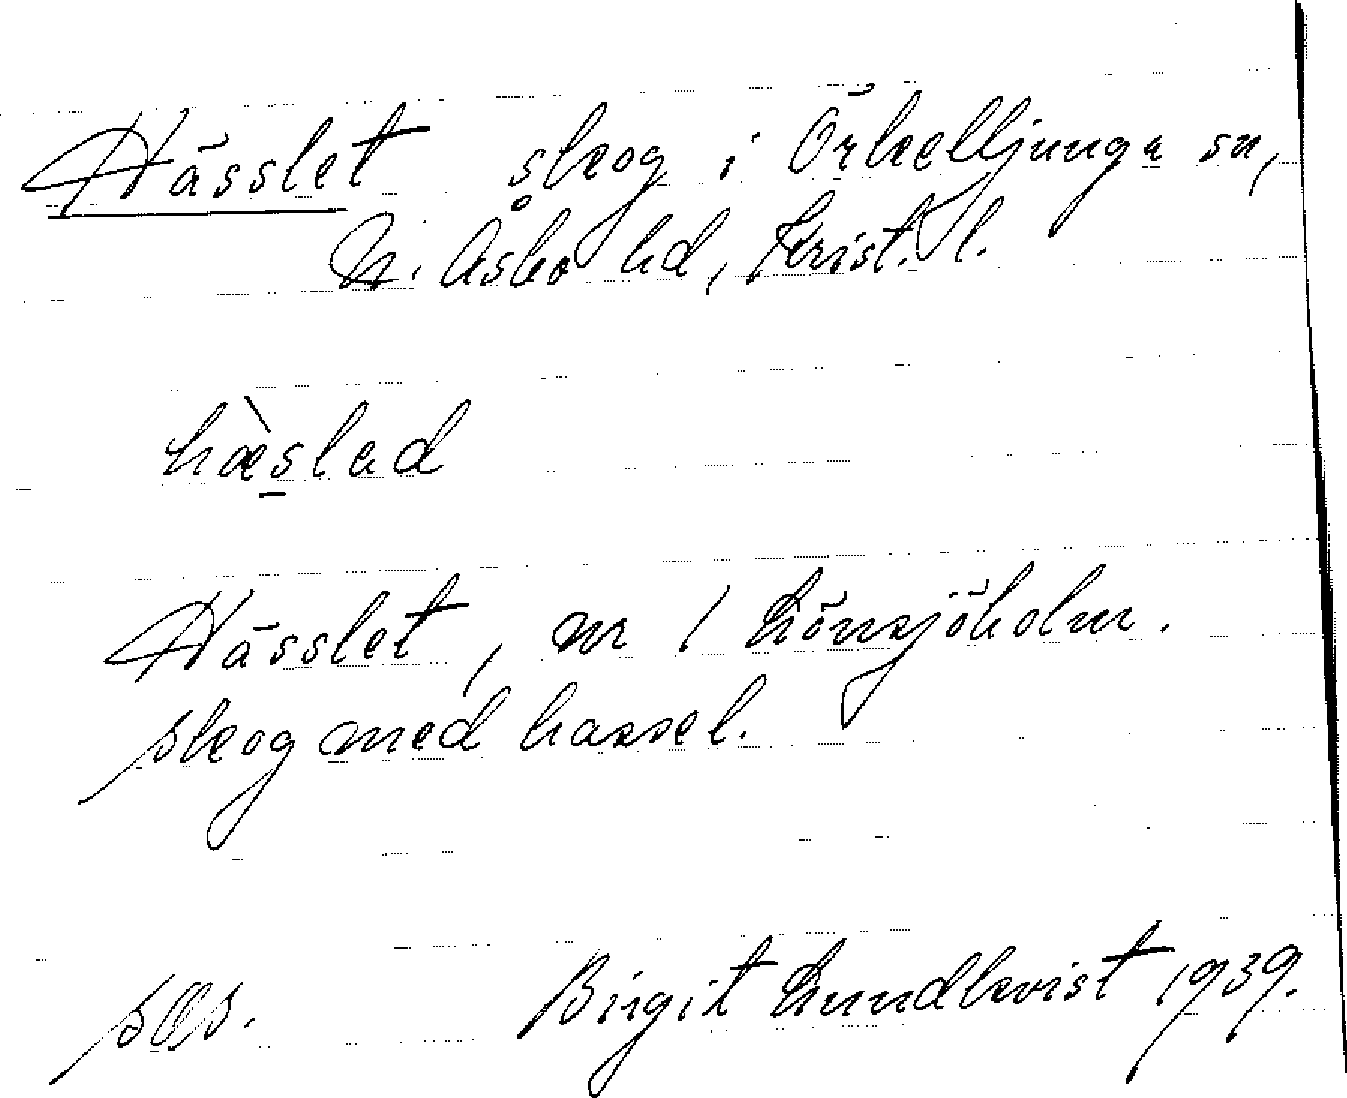 Hässlet skog i Örkelljunga sn,
N. Åsbo hd, Krist. l.
hæ̀slad
Hässlet, nr 1 Lönsjöholm.
skog med hassel.
Birgit Lundkvist 1939.